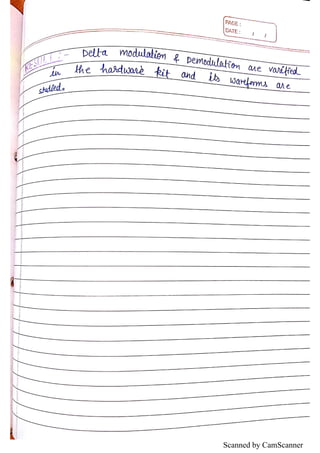 PAGE:
DATE: / /
RESULT:- Delta modulation & Demodulation are varified
in the hardware kit and its waveforms are
studied.
Scanned by CamScanner